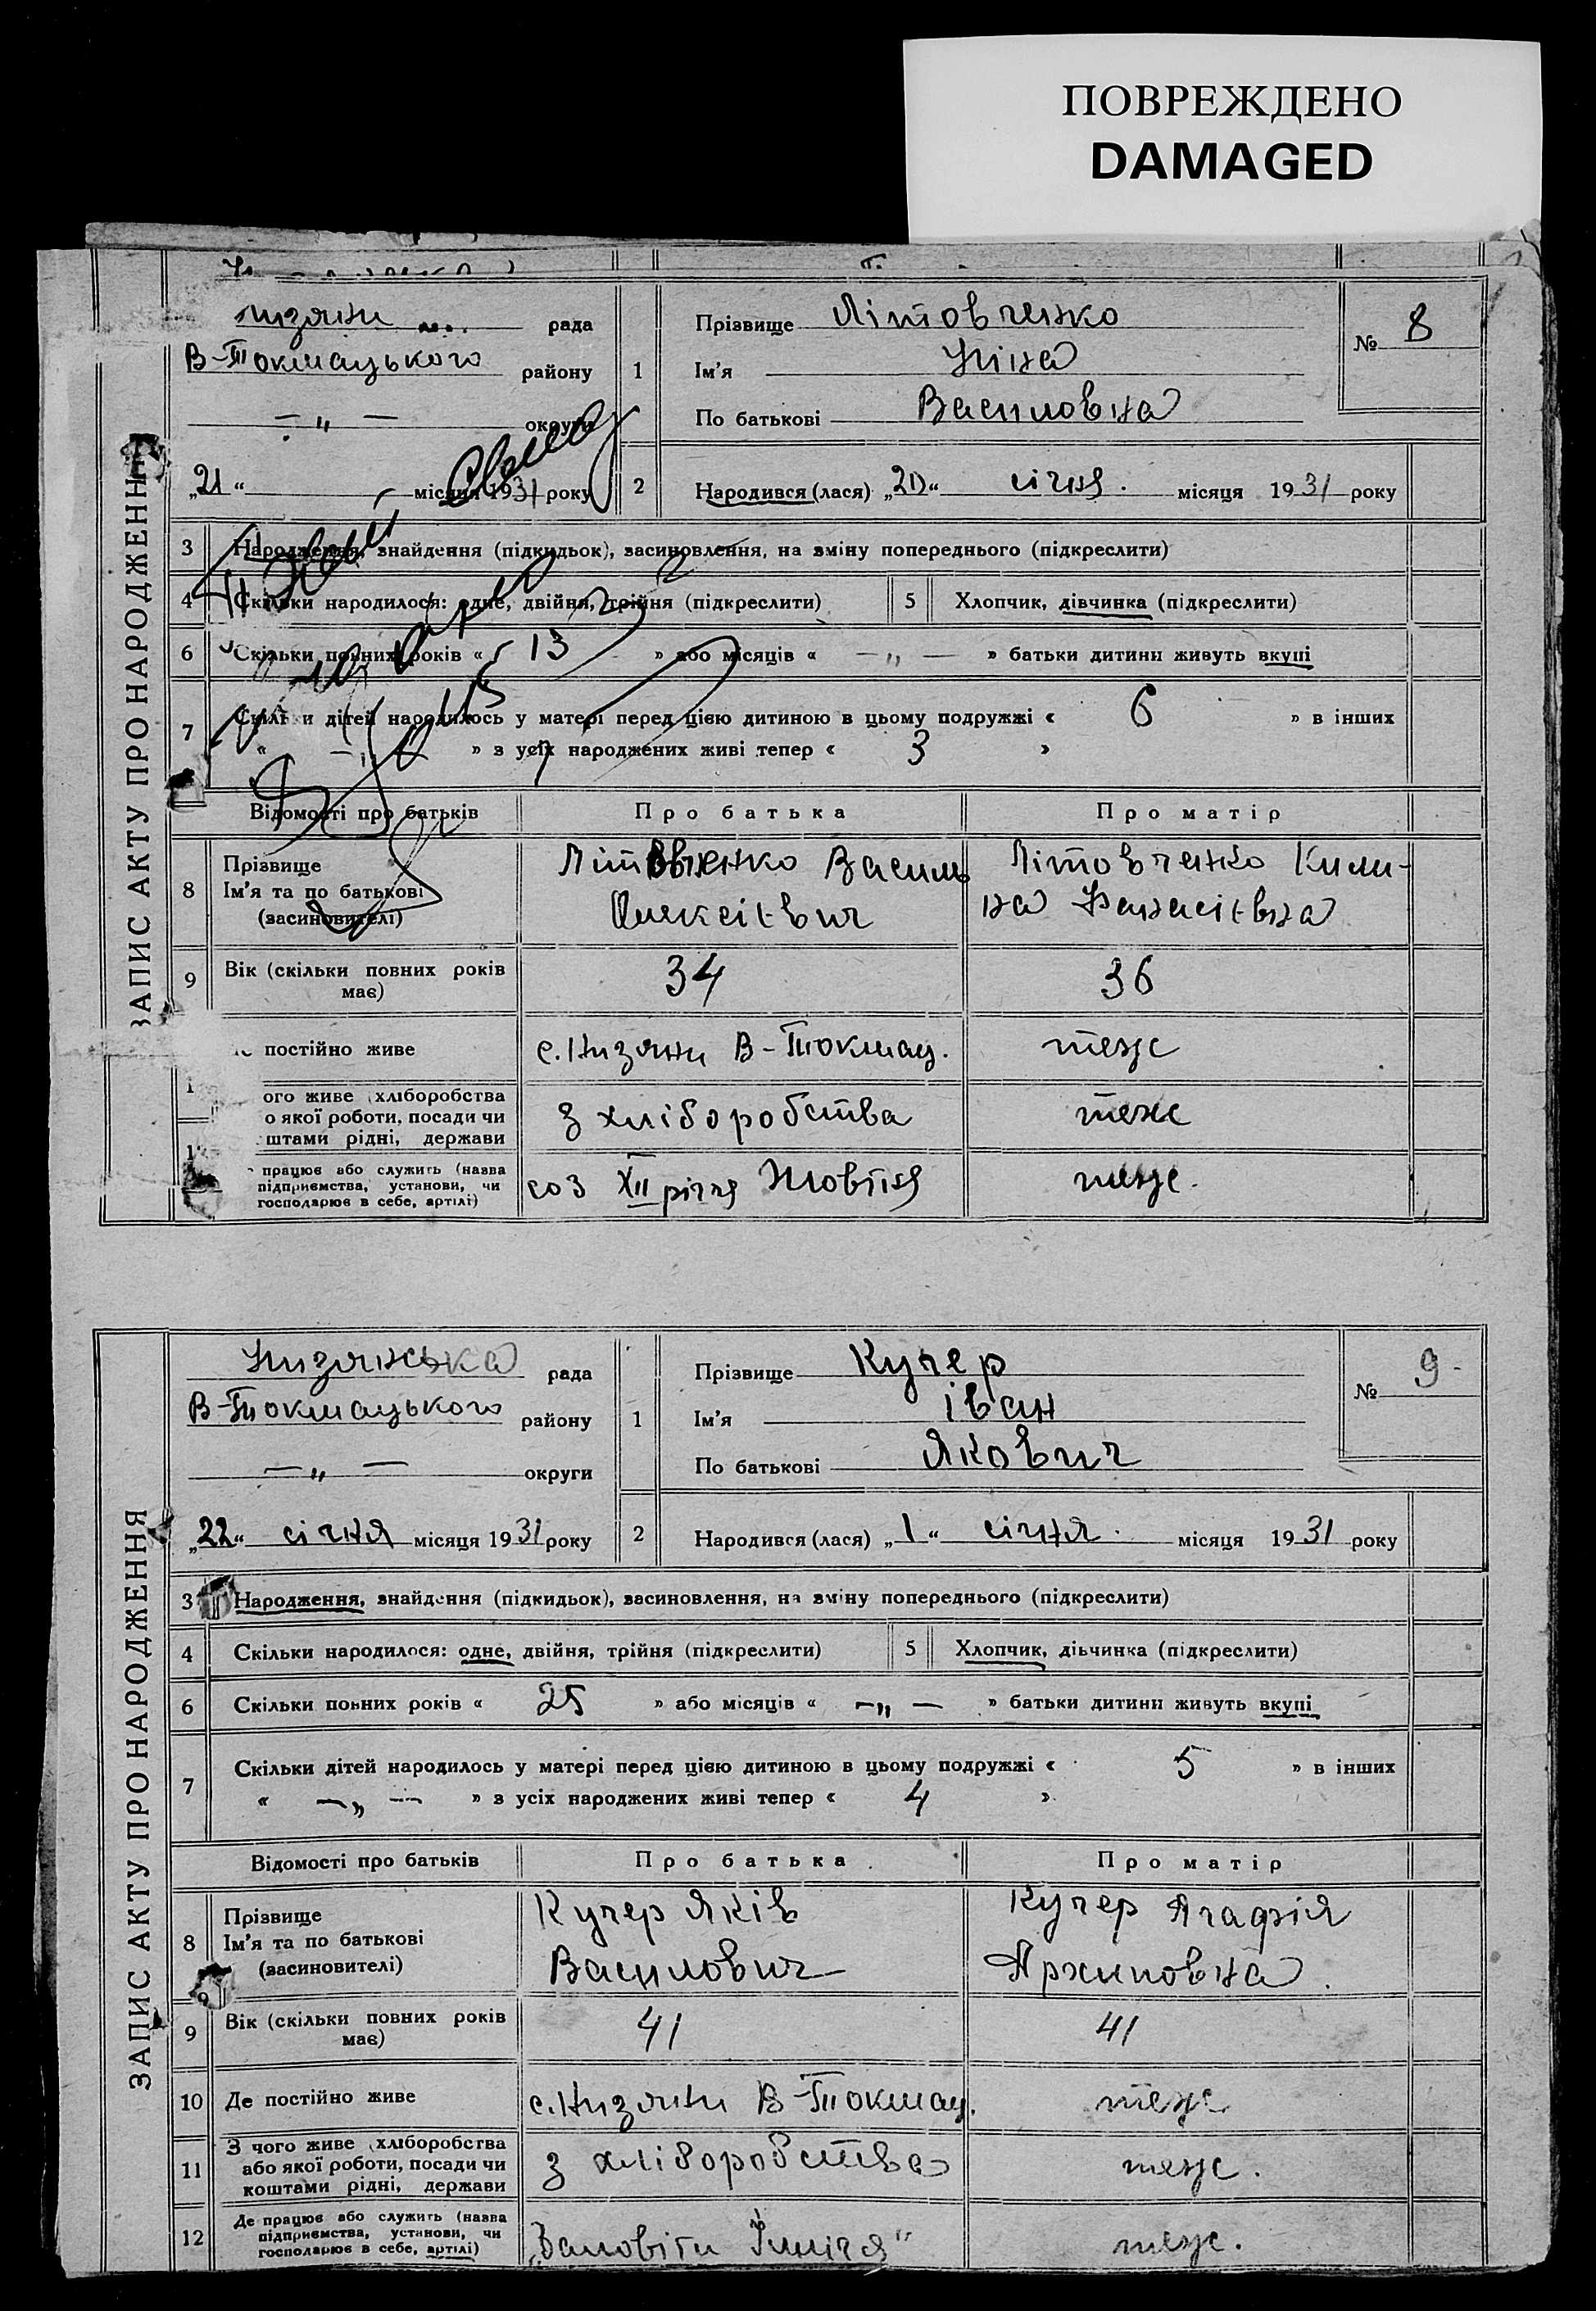 ПОВРЕЖДЕНО
DAMAGED
рада
В-Токмацького району
— „ — округи
„21“ місяця 1931 року
1
Прізвище Літовченко
Ім'я Ніна
По батькові Василовна
№ 8
2
Народився (лася) „20“ січня. місяця 1931 року
ЗАПИС АКТУ ПРО НАРОДЖЕННЯ
3 Народження, знайдення (підкидьок), засиновлення, на зміну попереднього (підкреслити)
4 Скільки народилося: одне, двійня, трійня (підкреслити) 5 Хлопчик, дівчинка (підкреслити)
6 Скільки повних років « 13 » або місяців « — „ — » батьки дитини живуть вкупі
7 Скільки дітей народилось у матері перед цією дитиною в цьому подружжі « 6 » в інших
« — „ » з усіх народжених живі тепер « 3 »
Відомості про батьків Про батька Про матір
8 Прізвище
Ім'я та по батькові
(засиновителі)
Літовченко Василь
Олексієвич
Літовченко Кили-
на Фанасієвна
9 Вік (скільки повних років має) 34 36
постійно живе с. Низяни В-Токмац. теж
ого живе (хліборобства
о якої роботи, посади чи
штами рідні, держави
з хліборобства теж
працює або служить (назва
підприємства, установи, чи
господарює в себе, артілі)
соз XII річчя Жовтня теж.
ЗАПИС АКТУ ПРО НАРОДЖЕННЯ
Низянська рада
В-Токмацького району
— „ — округи
„22“ січня місяця 1931 року
1
Прізвище Кучер
Ім'я Іван
По батькові Якович
№ 9
2
Народився (лася) „1“ січня. місяця 1931 року
3 Народження, знайдення (підкидьок), засиновлення, на зміну попереднього (підкреслити)
4 Скільки народилося: одне, двійня, трійня (підкреслити) 5 Хлопчик, дівчинка (підкреслити)
6 Скільки повних років « 25 » або місяців « — „ — » батьки дитини живуть вкупі
7 Скільки дітей народилось у матері перед цією дитиною в цьому подружжі « 5 » в інших
« — „ — » з усіх народжених живі тепер « 4 »
Відомості про батьків Про батька Про матір
8 Прізвище
Ім'я та по батькові
(засиновителі)
Кучер Яків
Василович
Кучер Агафія
Архиповна.
9 Вік (скільки повних років має) 41 41
10 Де постійно живе с. Низяни В-Токмац. теж
11 З чого живе (хліборобства
або якої роботи, посади чи
коштами рідні, держави
з хліборобства теж.
12 Де працює або служить (назва
підприємства, установи, чи
господарює в себе, артілі)
„Заповіти Ілліча“ теж.